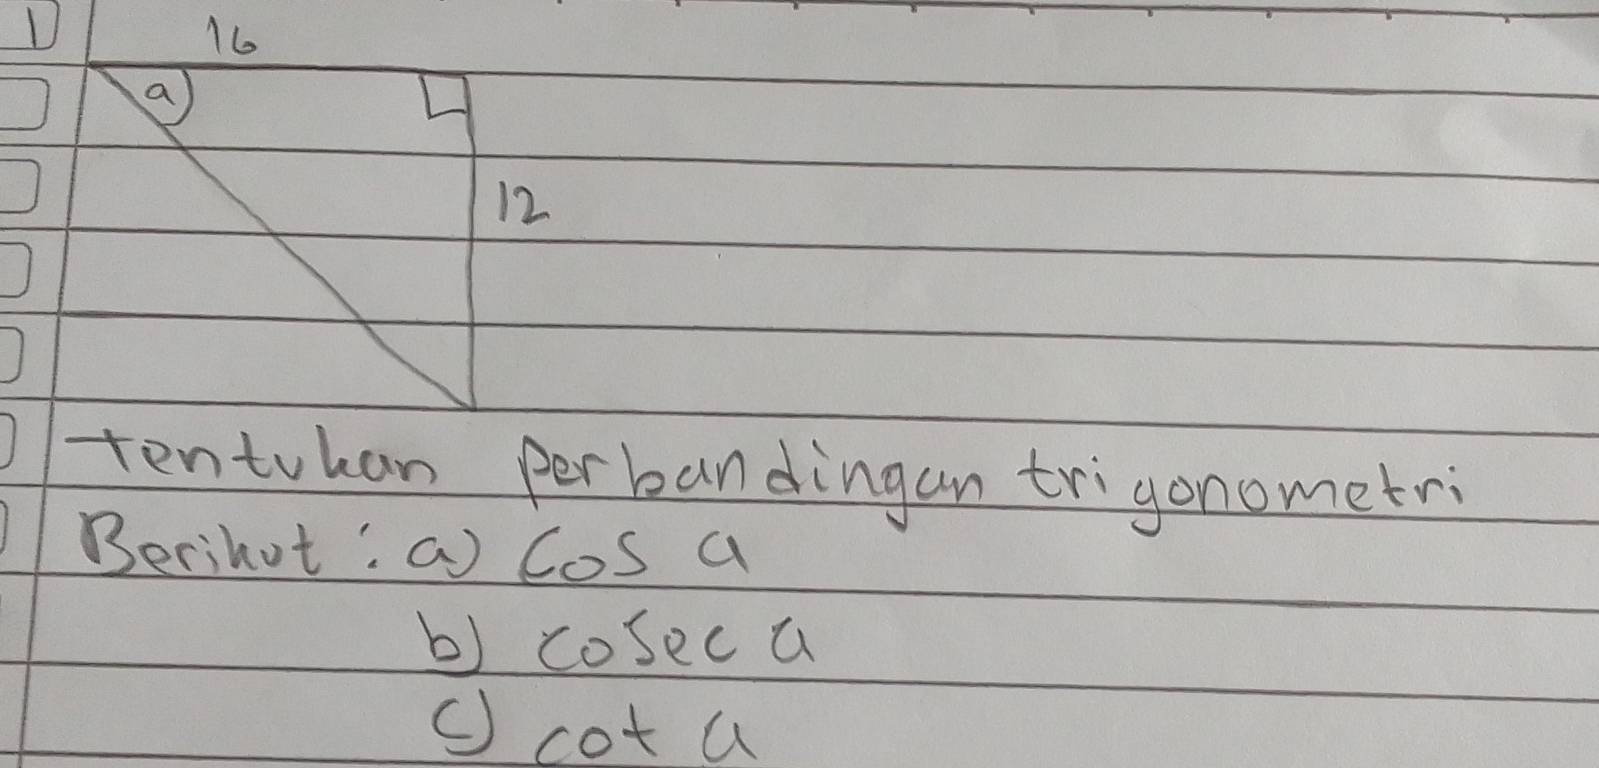 1 16
a
12
tentukan perbandingan trigonometri
Berikut : a) Cos a
b) cosec a
c) cot a